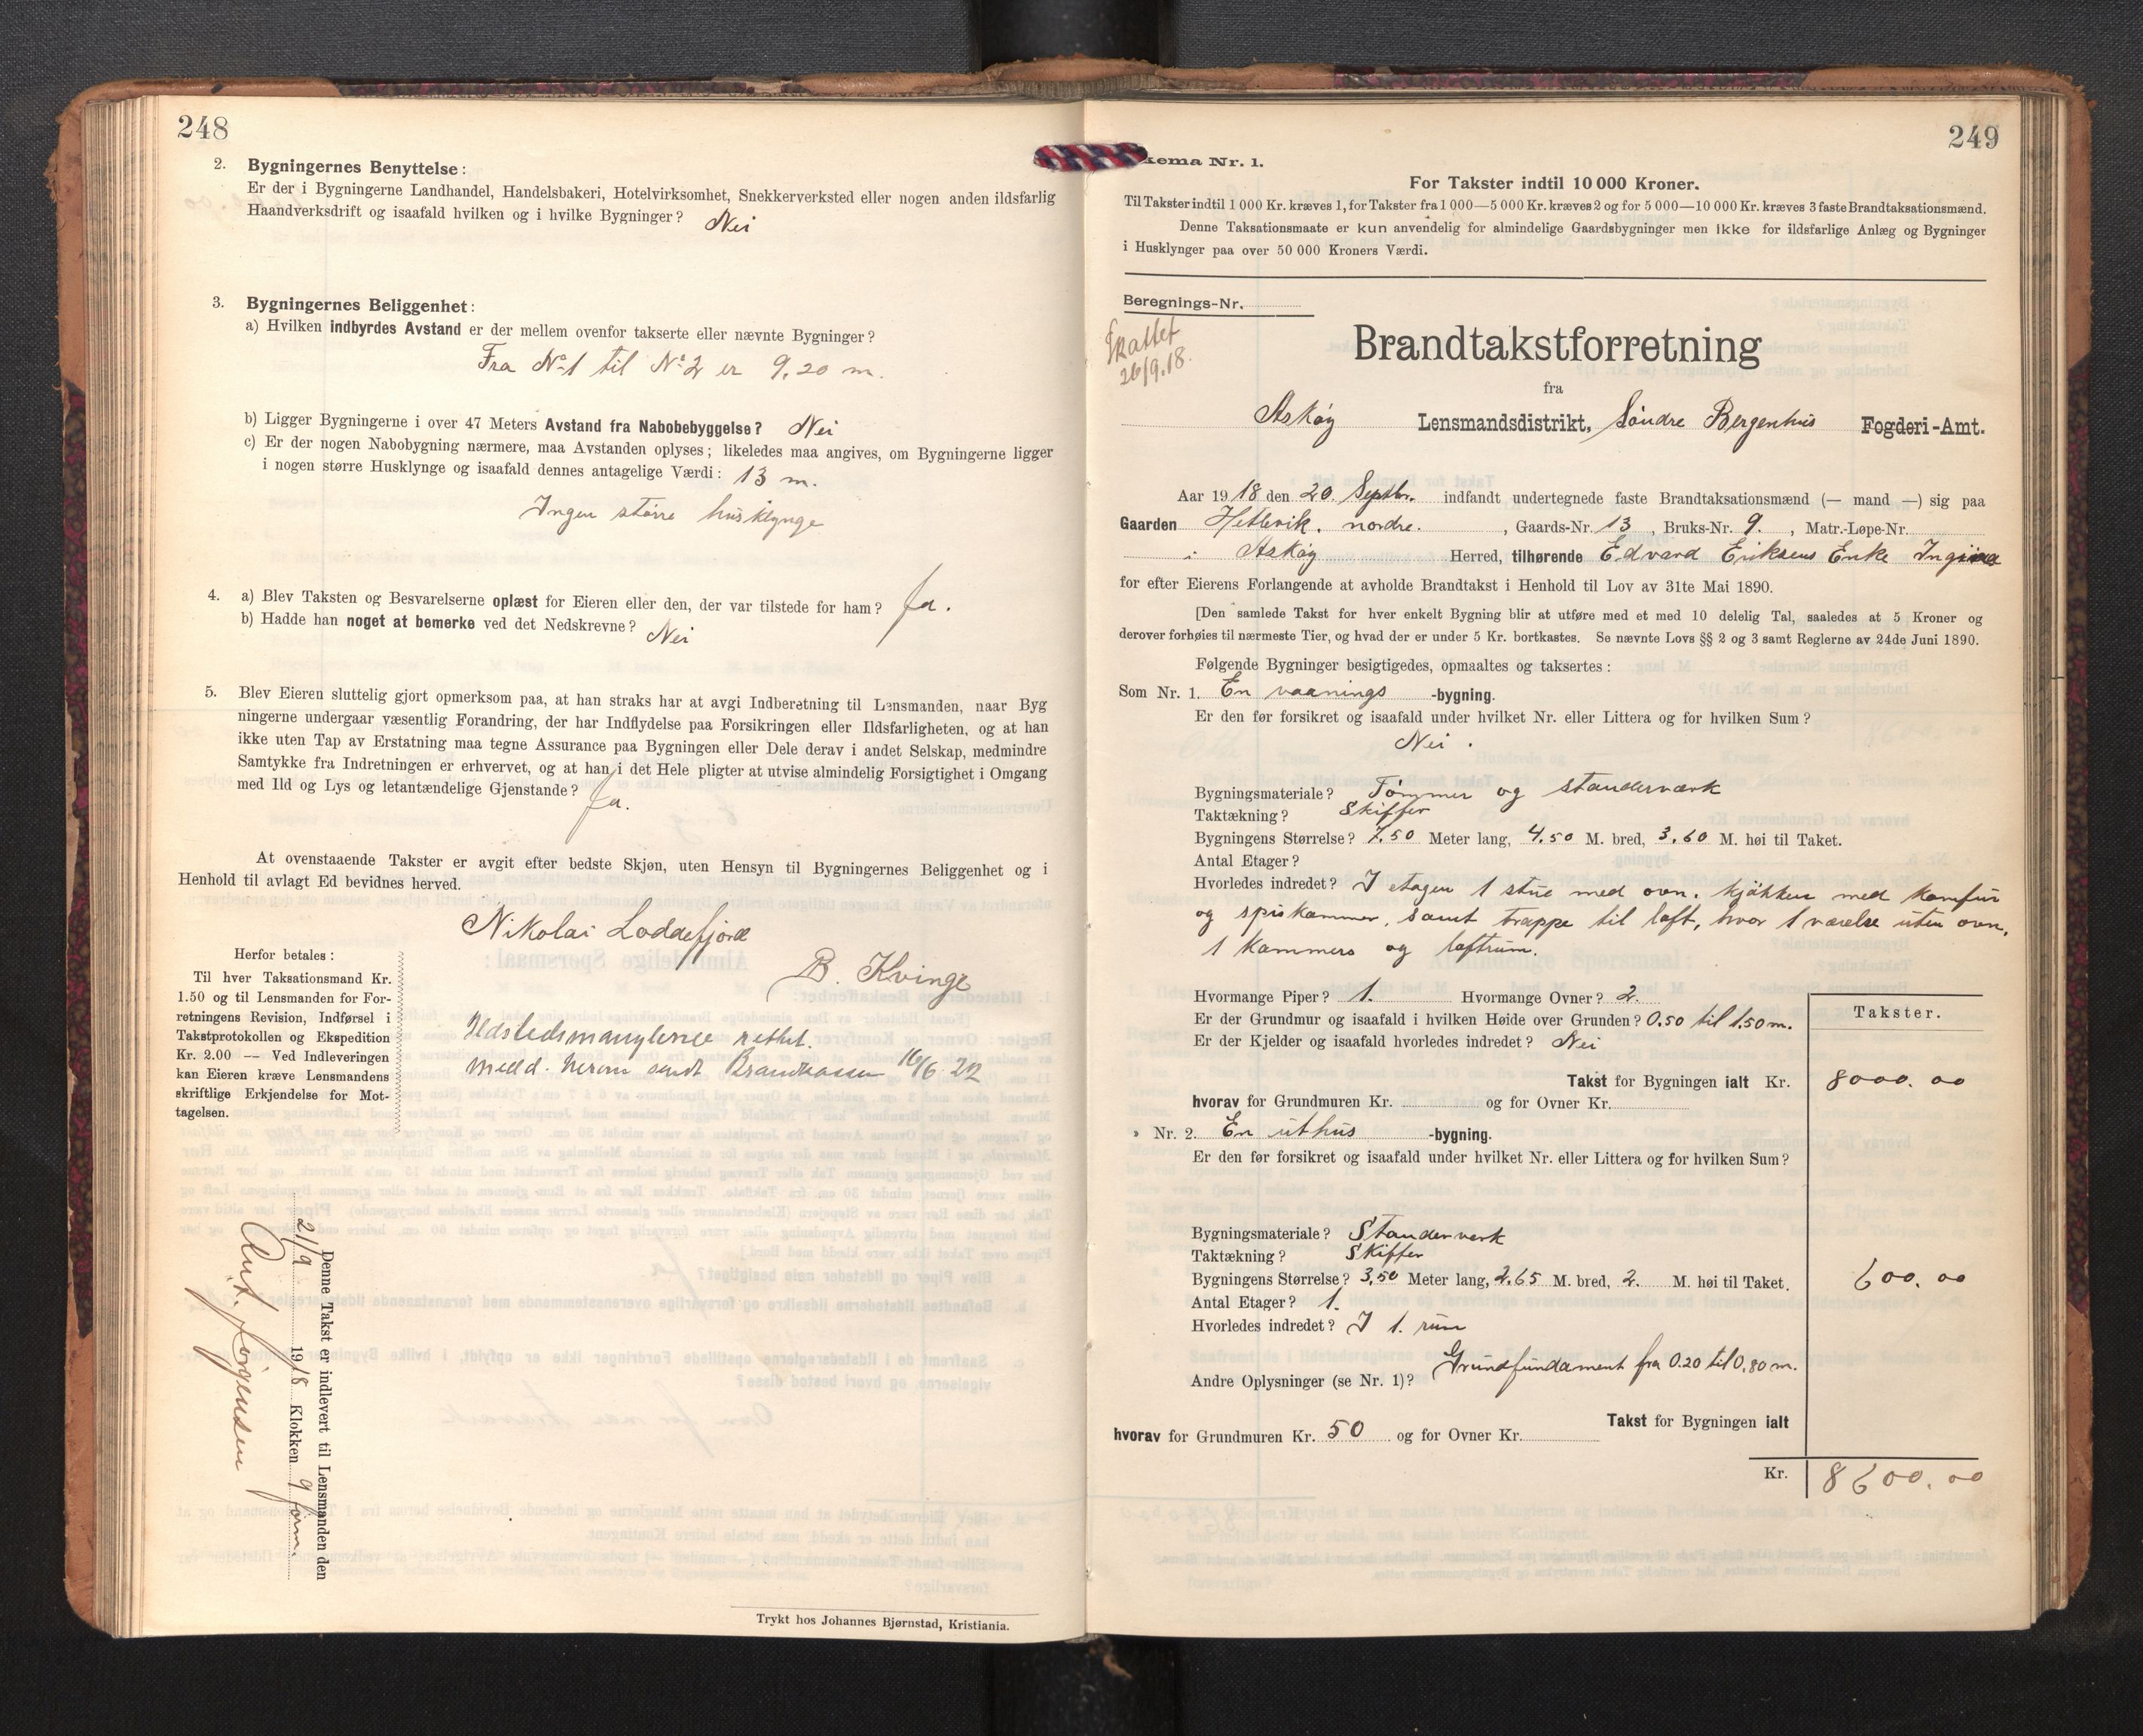 248
2. Bygningernes Benyttelse:
Er der i Bygningerne Landhandel, Handelsbakeri, Hotelvirksomhet, Snekkerverksted eller nogen anden ildsfarlig
Haandverksdrift og isaafald hvilken og i hvilke Bygninger? Nei
3. Bygningernes Beliggenhet:
a) Hvilken indbyrdes Avstand er der mellem ovenfor takserte eller nævnte Bygninger?
Fra No 1 til No 2 er 9,20 m.
b) Ligger Bygningerne i over 47 Meters Avstand fra Nabobebyggelse? Nei
c) Er der nogen Nabobygning nærmere, maa Avstanden oplyses; likeledes maa angives, om Bygningerne ligger
i nogen større Husklynge og isaafald dennes antagelige Værdi: 13 m.
Ingen større husklynge
4. a) Blev Taksten og Besvarelserne oplæst for Eieren eller den, der var tilstede for ham? Ja.
b) Hadde han noget at bemerke ved det Nedskrevne? Nei
5. Blev Eieren sluttelig gjort opmerksom paa, at han straks har at avgi Indberetning til Lensmanden, naar Byg
ningerne undergaar væsentlig Forandring, der har Indflydelse paa Forsikringen eller Ildsfarligheten, og at han
ikke uten Tap av Erstatning maa tegne Assurance paa Bygningen eller Dele derav i andet Selskap, medmindre
Samtykke fra Indretningen er erhvervet, og at han i det Hele pligter at utvise almindelig Forsigtighet i Omgang
med Ild og Lys og letantændelige Gjenstande? Ja.
At ovenstaaende Takster er avgit efter bedste Skjøn, uten Hensyn til Bygningernes Beliggenhet og i
Henhold til avlagt Ed bevidnes herved.
Nikolai Loddefjord
B. Kvinge
Herfor betales:
Til hver Taksationsmand Kr.
1.50 og til Lensmanden for For-
retningens Revision, Indførsel i
Takstprotokollen og Ekspedition
Kr. 2.00 — Ved Indleveringen
kan Eieren kræve Lensmandens
skriftlige Erkjendelse for Mot-
tagelsen.
Ildstedsmanglerne rettet.
Medd. herom sendt Brandkassen 16/6 22
Denne Takst er indlevert til Lensmanden den
21/9 1918 Klokken 9 form.
Ant. Jørgensen
Trykt hos Johannes Bjørnstad, Kristiania.
249
kema Nr. 1.
For Takster indtil 10 000 Kroner.
Til Takster indtil 1 000 Kr. kræves 1, for Takster fra 1 000—5 000 Kr. kræves 2 og for 5 000—10 000 Kr. kræves 3 faste Brandtaksationsmænd.
Denne Taksationsmaate er kun anvendelig for almindelige Gaardsbygninger men ikke for ildsfarlige Anlæg og Bygninger
i Husklynger paa over 50 000 Kroners Værdi.
Beregnings-Nr.
26/9.18.
Brandtakstforretning
fra
Askøy Lensmandsdistrikt, Søndre Bergenhus Fogderi-Amt.
Aar 1918 den 20. Septbr. indfandt undertegnede faste Brandtaksationsmænd (— mand —) sig paa
Gaarden Hetlevik, nordre. , Gaards-Nr. 13 , Bruks-Nr. 9. , Matr.-Løpe-Nr.
i Askøy Herred, tilhørende Edvard Eriksens Enke Ingina
for efter Eierens Forlangende at avholde Brandtakst i Henhold til Lov av 31te Mai 1890.
[Den samlede Takst for hver enkelt Bygning blir at utføre med et med 10 delelig Tal, saaledes at 5 Kroner og
derover forhøies til nærmeste Tier, og hvad der er under 5 Kr. bortkastes. Se nævnte Lovs §§ 2 og 3 samt Reglerne av 24de Juni 1890.
Følgende Bygninger besigtigedes, opmaaltes og taksertes:
Som Nr. 1. En vaanings -bygning.
Er den før forsikret og isaafald under hvilket Nr. eller Littera og for hvilken Sum?
Nei.
Bygningsmateriale? Tømmer og standerværk
Taktækning? Skiffer
Bygningens Størrelse? 7.50 Meter lang, 4.50 M. bred, 3.60 M. høi til Taket.
Antal Etager?
Hvorledes indredet? I etagen 1 stue med ovn, kjøkken med komfur
og spiskammer, samt trappe til loft, hvor 1 værelse uten ovn,
1 kammers og loftrum.
Hvormange Piper? 1. Hvormange Ovner? 2.
Er der Grundmur og isaafald i hvilken Høide over Grunden? 0.50 til 1.50 m.
Er der Kjelder og isaafald hvorledes indredet? Nei
Takster.
Takst for Bygningen ialt Kr. 8000.00
hvorav for Grundmuren Kr. og for Ovner Kr.
» Nr. 2. En uthus -bygning.
Er den før forsikret og isaafald under hvilket Nr. eller Littera og for hvilken Sum?
Bygningsmateriale? Standerverk
Taktækning? Skiffer
Bygningens Størrelse? 3,50 Meter lang, 2,65 M. bred, 2. M. høi til Taket. 600.00
Antal Etager? 1.
Hvorledes indredet? I 1. rum
Andre Oplysninger (se Nr. 1)? Grundfundament fra 0.20 til 0,80 m.
Takst for Bygningen ialt
hvorav for Grundmuren Kr. 50 og for Ovner Kr.
Kr. 8600.00